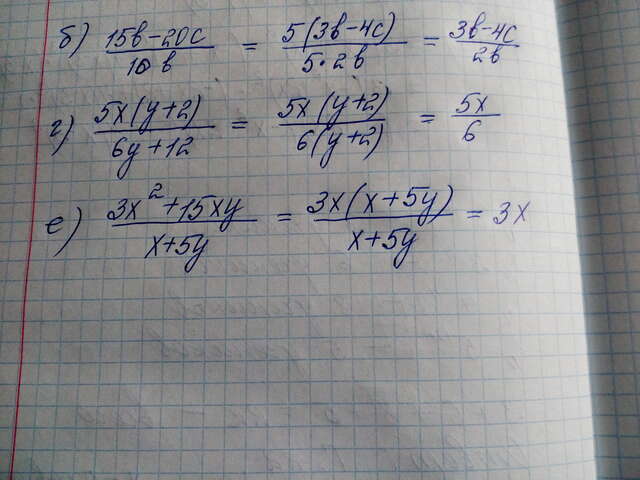 б) (15в-20с)/(10в) = (5(3в-4с))/(5·2в) = (3в-4с)/(2в)
г) (5x(y+2))/(6y+12) = (5x(y+2))/(6(y+2)) = 5x/6
е) (3x²+15xy)/(x+5y) = (3x(x+5y))/(x+5y) = 3x